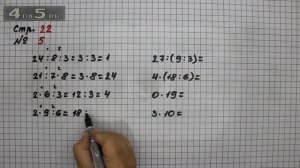 4DA5.RU
Стр. 22
№ 5
24 : 8 : 3 = 3 : 3 = 1
21 : 7 · 8 = 3 · 8 = 24
2 · 6 : 3 = 12 : 3 = 4
2 · 9 : 6 = 18 :
27 : (9 : 3) =
4 · (18 : 6) =
0 · 19 =
3 · 10 =